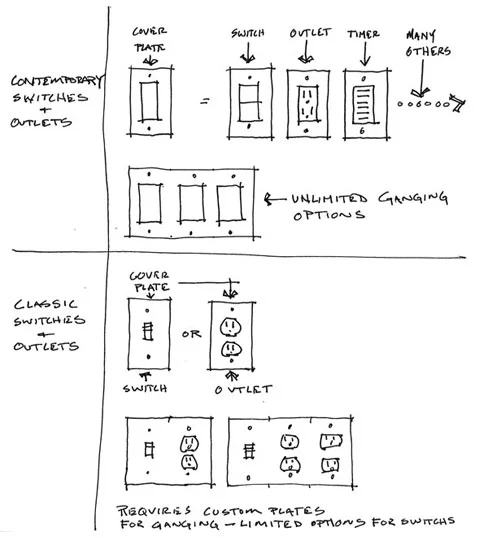 COVER
PLATE
SWITCH
OUTLET
TIMER
MANY
OTHERS
CONTEMPORARY
SWITCHES
+
OUTLETS
=
UNLIMITED GANGING
OPTIONS
COVER
PLATE
CLASSIC
SWITCHES
+
OUTLETS
OR
SWITCH
OUTLET
REQUIRIES CUSTOM PLATES
FOR GANGING - LIMITED OPTIONS FOR SWITCHS